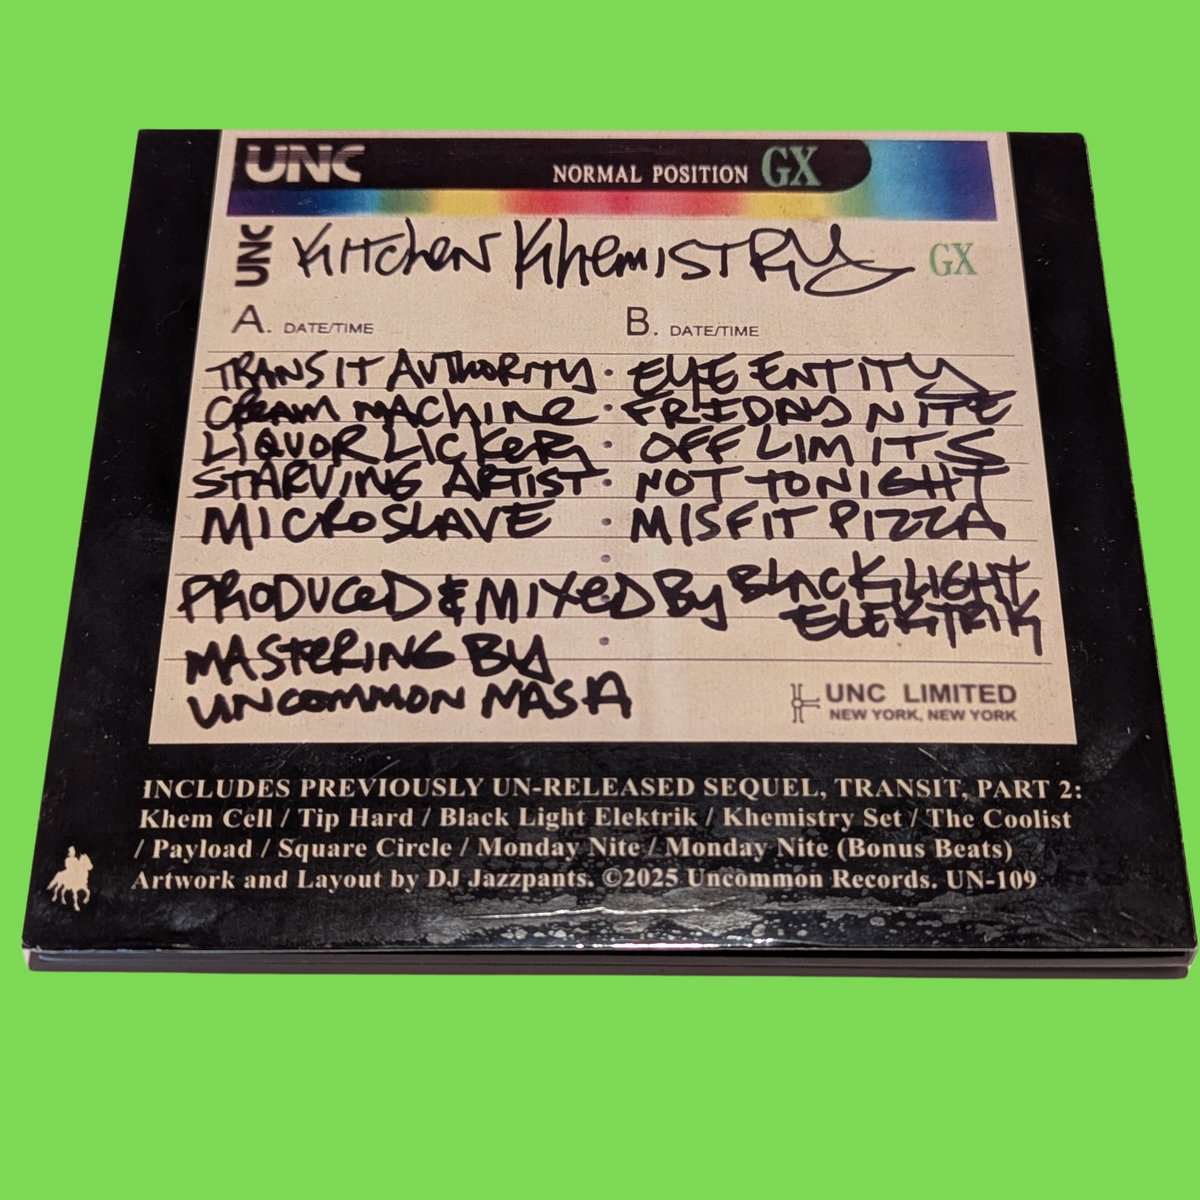 UNC NORMAL POSITION GX
UNC KITCHEN KHEMISTRY GX
A. DATE/TIME B. DATE/TIME
TRANSIT AUTHORITY · EYE ENTITY
CREAM MACHINE · FRIDAY NITE
LIQUOR LICKER · OFF LIMITS
STARVING ARTIST · NOT TONIGHT
MICROSLAVE · MISFIT PIZZA
PRODUCED & MIXED BY BLACK LIGHT
ELEKTRIK
MASTERING BY
UNCOMMON NASA
UNC LIMITED
NEW YORK, NEW YORK
INCLUDES PREVIOUSLY UN-RELEASED SEQUEL, TRANSIT, PART 2:
Khem Cell / Tip Hard / Black Light Elektrik / Khemistry Set / The Coolist
/ Payload / Square Circle / Monday Nite / Monday Nite (Bonus Beats)
Artwork and Layout by DJ Jazzpants. ©2025 Uncommon Records. UN-109